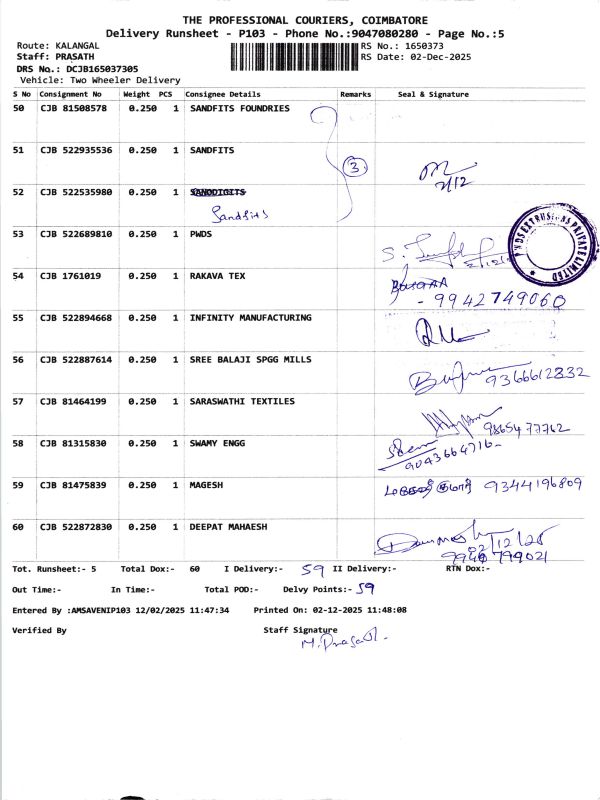 THE PROFESSIONAL COURIERS, COIMBATORE
Delivery Runsheet - P103 - Phone No.:9047080280 - Page No.:5
Route: KALANGAL RS No.: 1650373
Staff: PRASATH RS Date: 02-Dec-2025
DRS No.: DCJB165037305
Vehicle: Two Wheeler Delivery
S No Consignment No Weight PCS Consignee Details Remarks Seal & Signature
50 CJB 81508578 0.250 1 SANDFITS FOUNDRIES
51 CJB 522935536 0.250 1 SANDFITS 3 2/12
52 CJB 522535980 0.250 1
Sandfits
53 CJB 522689810 0.250 1 PWDS
54 CJB 1761019 0.250 1 RAKAVA TEX
- 9942749060
55 CJB 522894668 0.250 1 INFINITY MANUFACTURING
56 CJB 522887614 0.250 1 SREE BALAJI SPGG MILLS 9366612832
57 CJB 81464199 0.250 1 SARASWATHI TEXTILES 9865477762
58 CJB 81315830 0.250 1 SWAMY ENGG 9043664716-
59 CJB 81475839 0.250 1 MAGESH 9344196809
60 CJB 522872830 0.250 1 DEEPAT MAHAESH 02/12/25
9940 799021
Tot. Runsheet:- 5 Total Dox:- 60 I Delivery:- 59 II Delivery:- RTN Dox:-
Out Time:- In Time:- Total POD:- Delvy Points:- 59
Entered By :AMSAVENIP103 12/02/2025 11:47:34 Printed On: 02-12-2025 11:48:08
Verified By Staff Signature
M. Prasath.